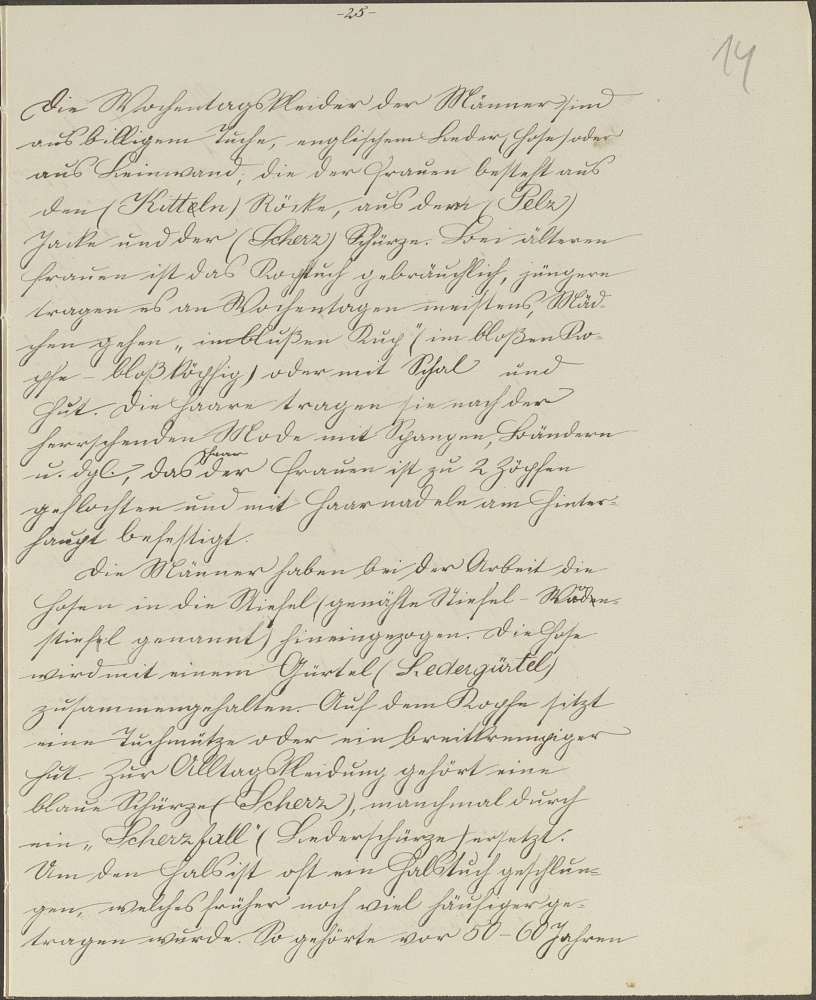 -25-
14
Die Wochentagskleider der Männer sind
aus billigem Tuche, englischem Leder (Hose) oder
aus Leinwand; die der Frauen besteht aus
den (Kitteln) Röcke, aus dem (Pelz)
Jacke und der (Scherz) Schürze. Bei älteren
Frauen ist das Kopftuch gebräuchlich, jüngere
tragen es an Wochentagen meistens, Mäd-
chen gehen „im blußen Kup" (im bloßen Ko-
pfe - bloßköpfig) oder mit Schal und
Hut. Die Haare tragen sie nach der
herrschenden Mode mit Spangen, Bändern
u. dgl., das Haar der Frauen ist zu 2 Zöpfen
geflochten und mit Haarnadeln am Hinter-
haupt befestigt.
Die Männer haben bei der Arbeit die
Hosen in die Stiefel (genähte Stiefel - Waden-
stiefel genannt) hineingezogen. Die Hose
wird mit einem Gürtel (Ledergürtel)
zusammengehalten. Auf dem Kopfe sitzt
eine Tuchmütze oder ein breitkrempiger
Hut. Zur Alltagskleidung gehört eine
blaue Schürze (Scherz), manchmal durch
ein „Scherzfall" (Lederschürze) ersetzt.
Um den Hals ist oft ein Halstuch geschlun-
gen, welches früher noch viel häufiger ge-
tragen wurde. So gehörte vor 50-60 Jahren